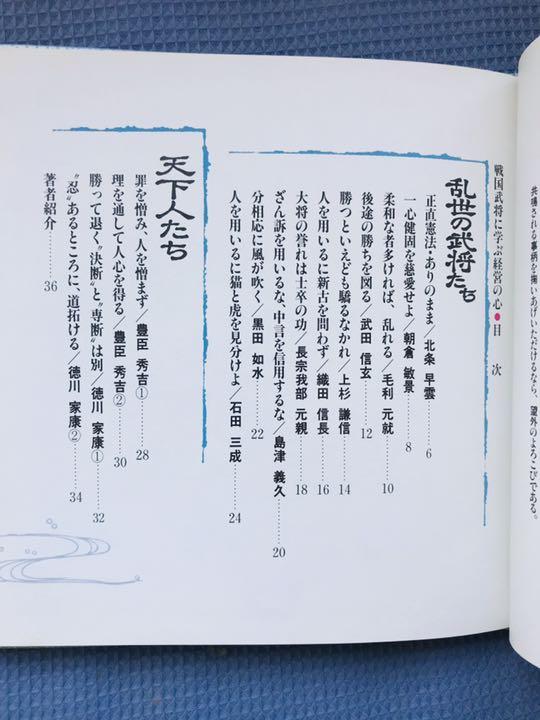 共鳴される事柄を掬いあげいただけるなら、望外のよろこびである。
戦国武将に学ぶ経営の心●目次
乱世の武将たち
正直憲法・ありのまま／北条 早雲……6
一心健固を慈愛せよ／朝倉 敏景……8
柔和な者多ければ、乱れる／毛利 元就……10
後途の勝ちを図る／武田 信玄……12
勝つといえども驕るなかれ／上杉 謙信……14
人を用いるに新古を問わず／織田 信長……16
大将の誉れは士卒の功／長宗我部 元親……18
ざん訴を用いるな、中言を信用するな／島津 義久……20
分相応に風が吹く／黒田 如水……22
人を用いるに猫と虎を見分けよ／石田 三成……24
天下人たち
罪を憎み、人を憎まず／豊臣 秀吉①……28
理を通して人心を得る／豊臣 秀吉②……30
勝って退く“決断”と“専断”は別／徳川 家康①……32
“忍”あるところに、道拓ける／徳川 家康②……34
著者紹介……36